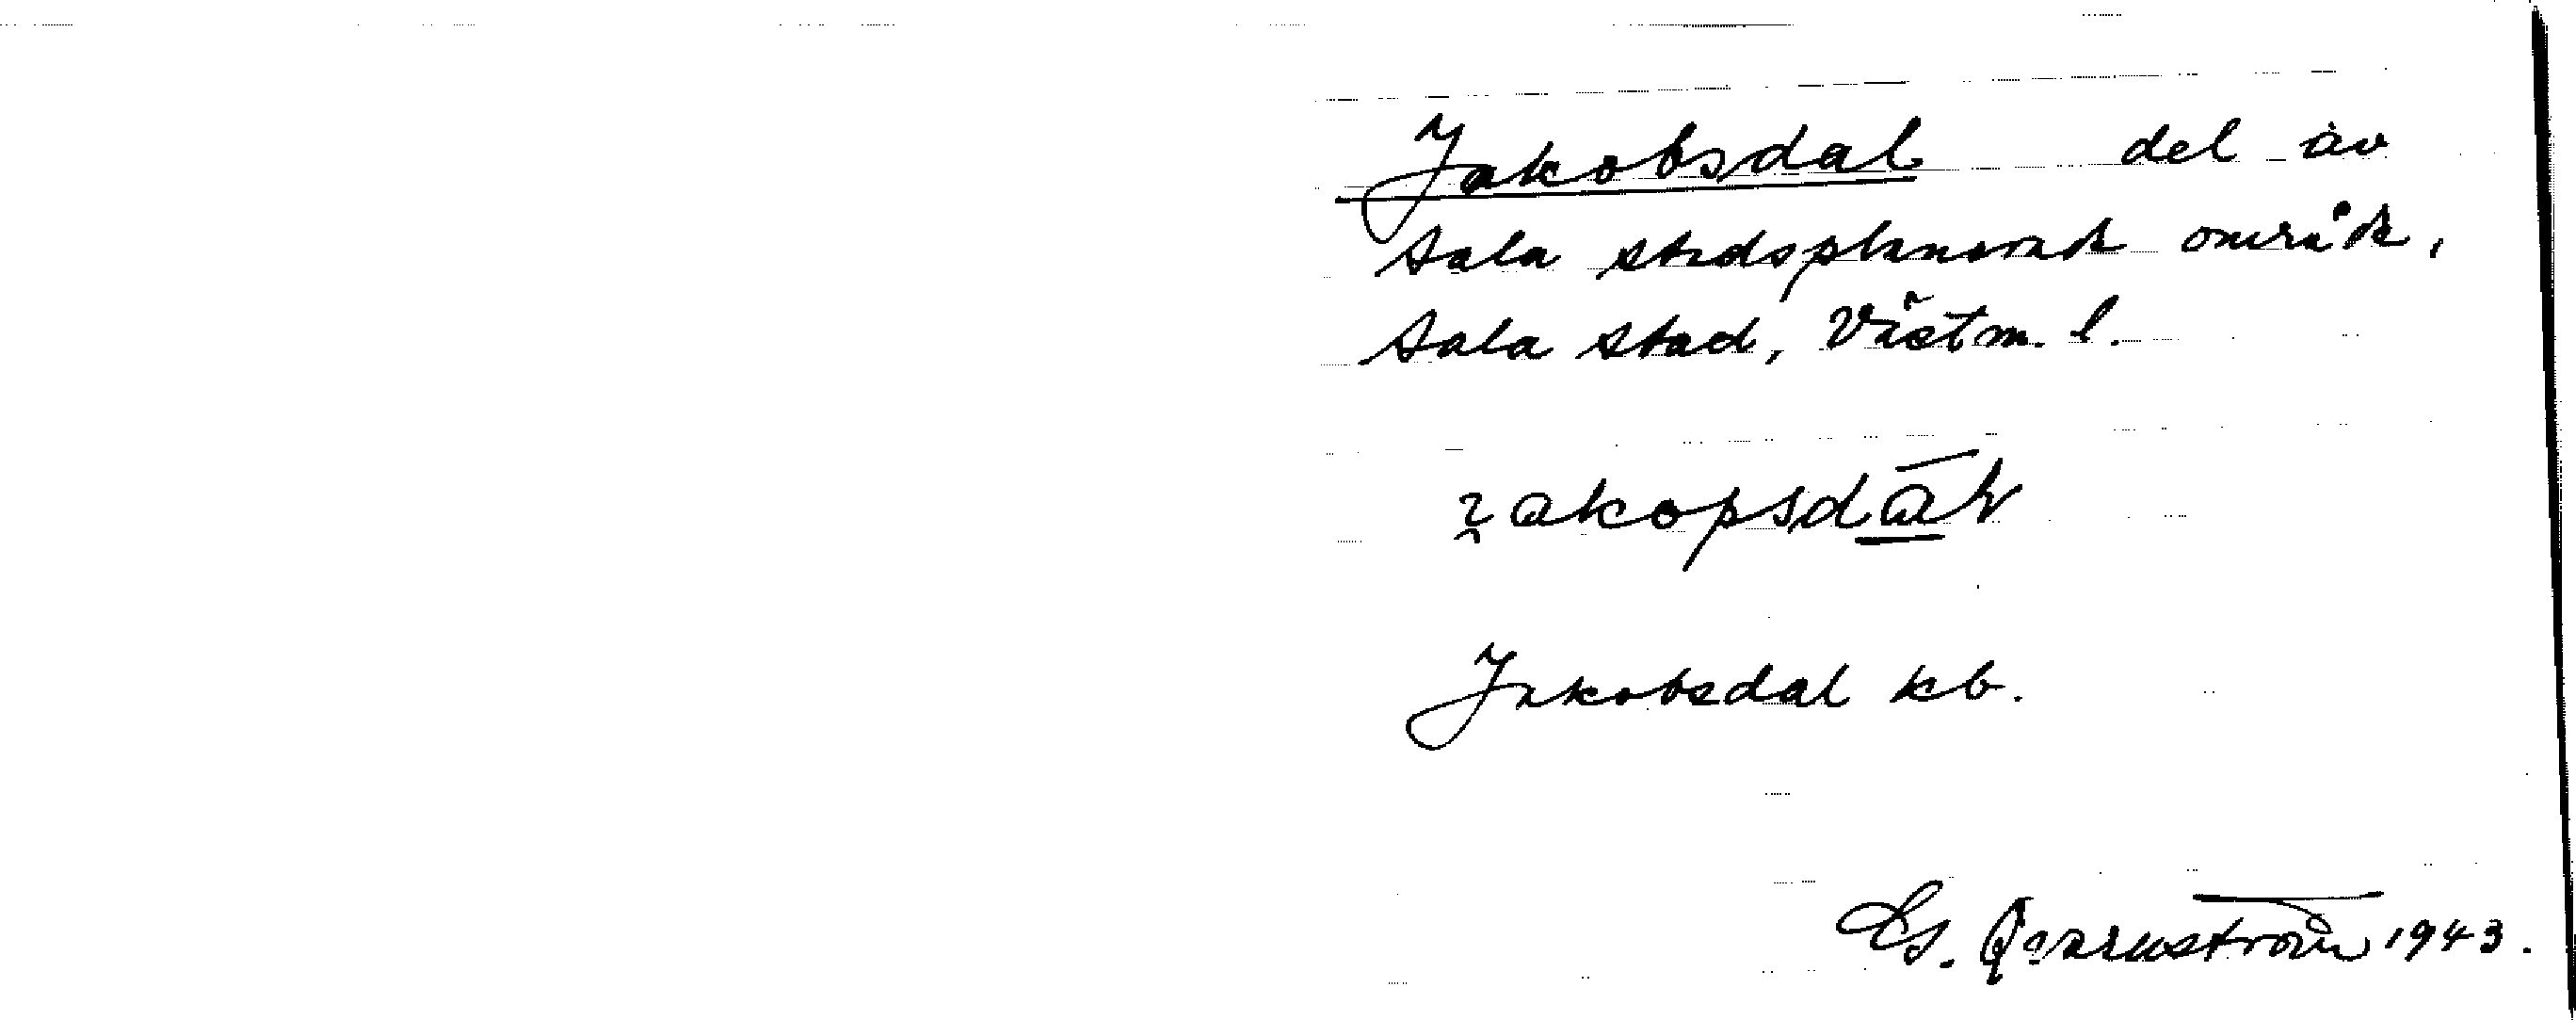 Jakobsdal del av
Sala stadsplanerade område,
Sala stad, Västm. l.
Jakobsdal kb.
Qvarnström 1943.